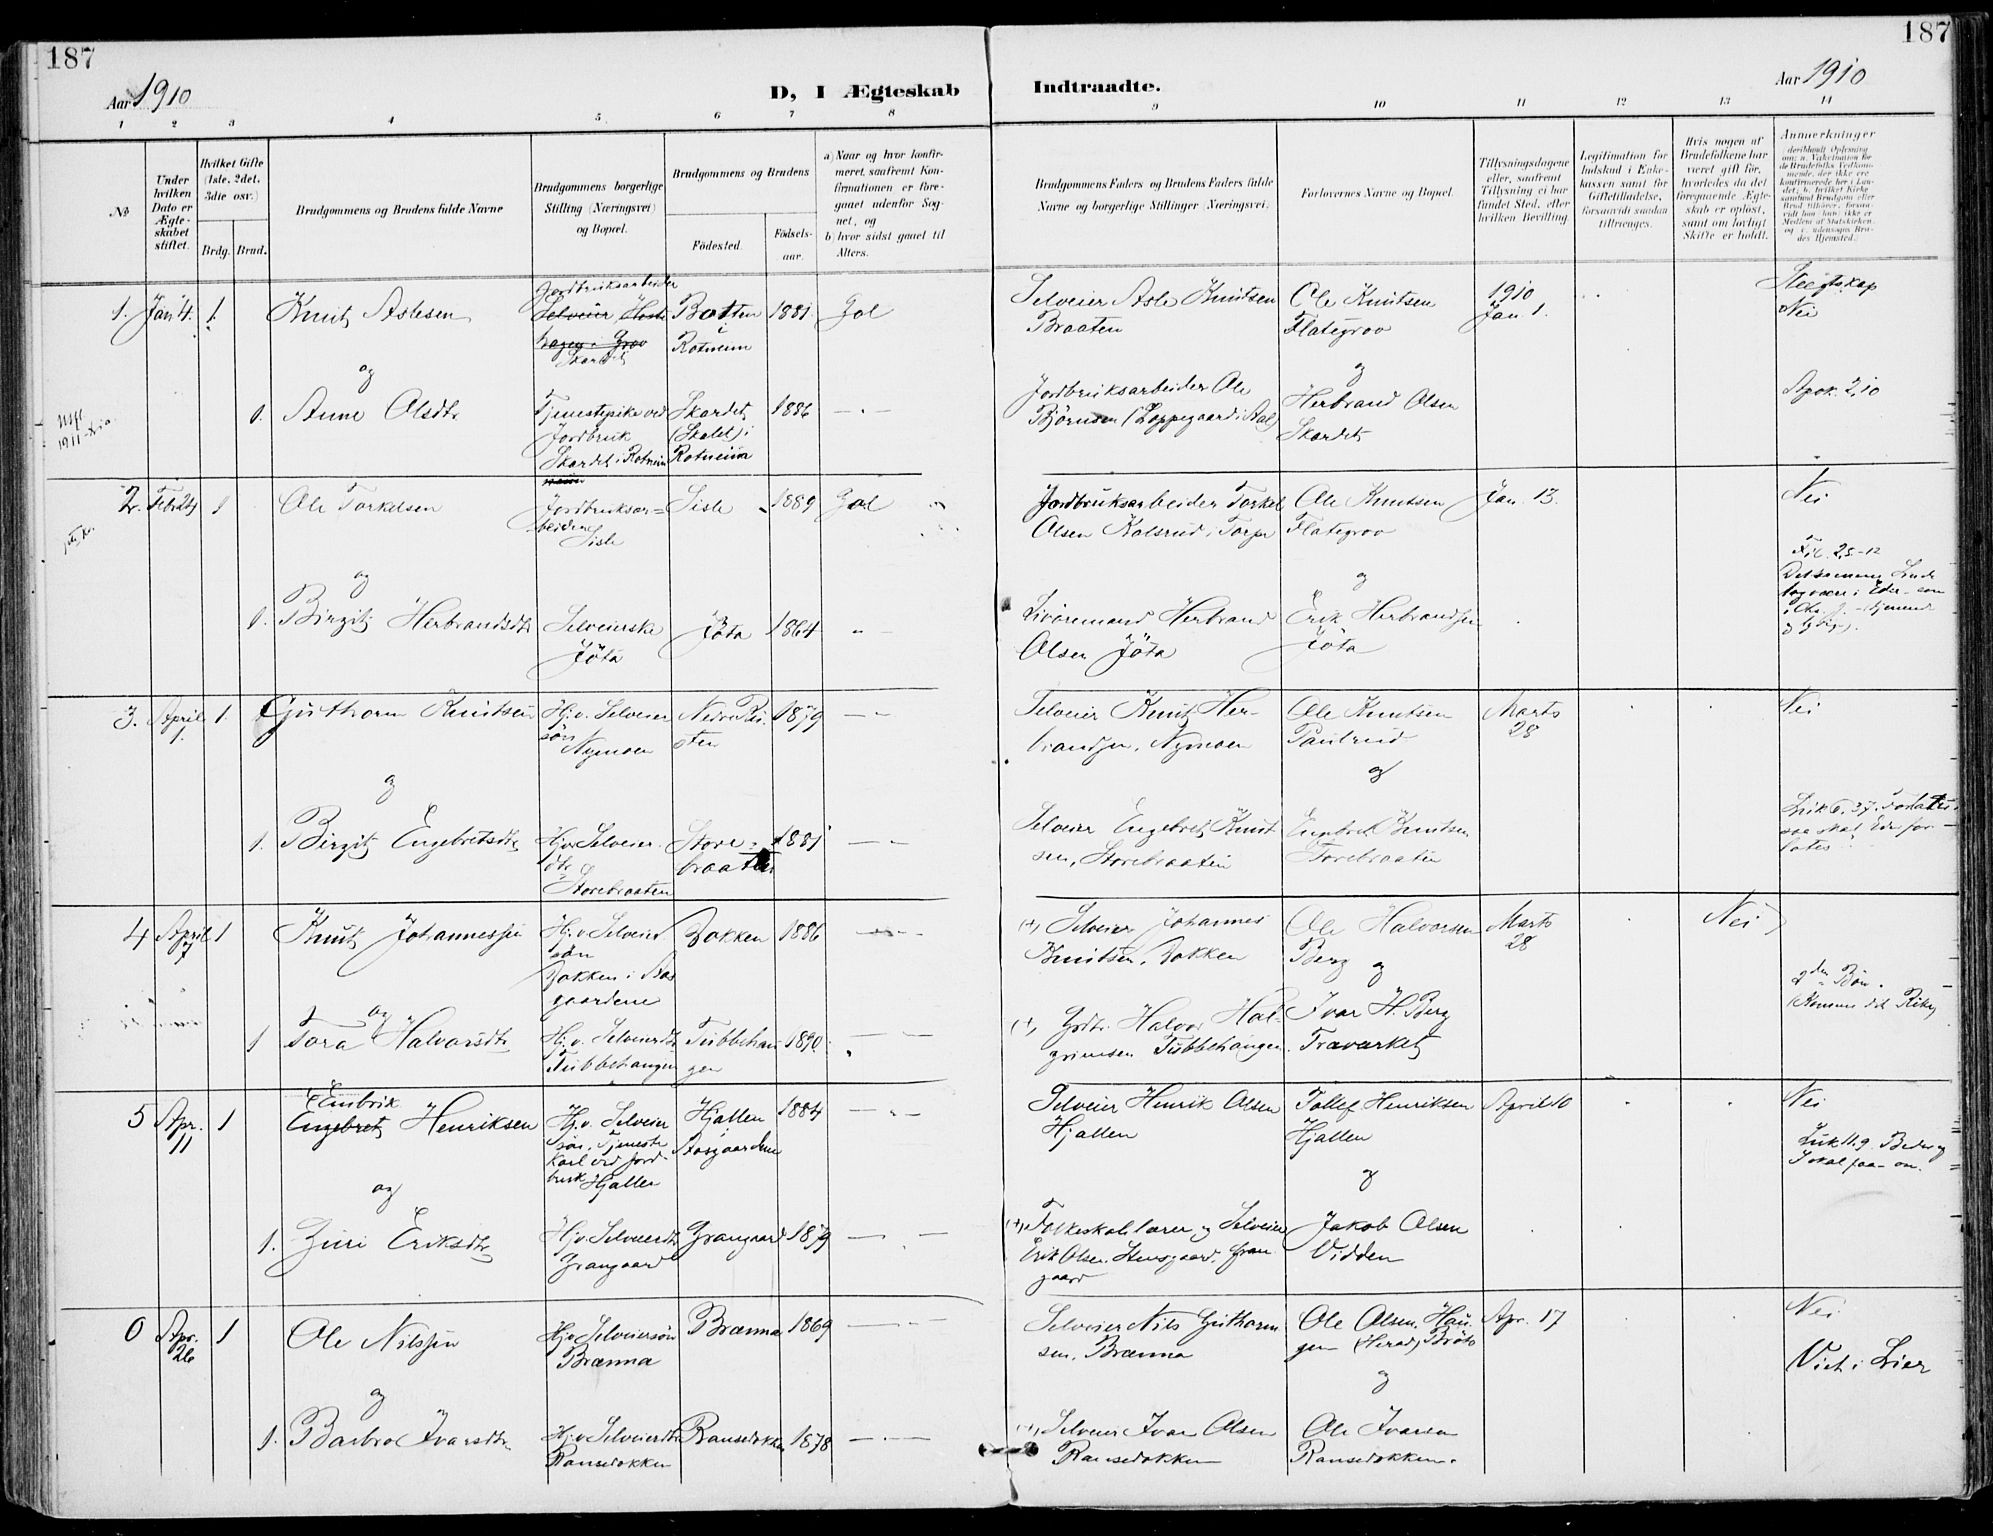 187
187
Aar 1910
D, I Ægteskab
Indtraadte.
Aar 1910
1 2 3 4 5 6 7 8 9 10 11 12 13 14
No
Under hvilken Dato er Ægteskabet stiftet.
Hvilket Gifte (1ste, 2det, 3die osv.)
Brdg. Brud.
Brudgommens og Brudens fulde Navne
Brudgommens borgerlige Stilling (Næringsvei) og Bopæl.
Brudgommens og Brudens
Födested.
Födselsaar.
a) Naar og hvor konfirmeret, saafremt Konfirmationen er foregaaet udenfor Sognet, og
b) hvor sidst gaaet til Alters.
Brudgommens Faders og Brudens Faders fulde Navne og borgerlige Stillinger (Næringsvei)
Forlovernes Navne og Bopæl.
Tillysningsdagene eller, saafremt Tillysning ei har fundet Sted, efter hvilken Bevilling
Legitimation for Indskud i Enkekassen samt for Giftetilladelse, forsaavidt saadan tiltrænges.
Hvis nogen af Brudefolkene har været gift för, hvorledes da det foregaaende Ægteskab er oplöst, samt om lovligt Skifte er holdt.
Anmerkninger
1. Jan 4. 1
Knut Aslesen
Jordbruksarbeider
Selveier
Skardet
Botten i Rotneim
1881
Gol
Selveier Asle Knutsen
Braaten
Ole Knutsen
Flategrov
1910
Jan 1.
Slegtskap
Nei
og
og
1. Anne Olsdtr
Tjenestepike ved
Jordbruk
Skardet i Rotneim
Skardet
(Skalet) i
Rotneim
1886
Jordbruksarbeider Ole
Björnsen (Loppegaard i Aal)
Herbrand Olsen
Skardet
Apok. 2,10
2. Febr 24 1
Ole Torkelsen
Jordbruksar=
beider
Sisle
Sisle
1889
Gol
Jordbruksarbeider Torkel
Olsen Kalsrud i Torpe
Ole Knutsen
Flategrov
Jan. 13.
Nei
og
og
1. Birgit Herbrandsdtr
Selveierske
Jöta
Jöta
1864
Herbrand
Olsen Jöta
Erik Herbrandsen
Jöta
3. April 1. 1.
Guthorm Knutsen
Hj.v. Selveier
sön
Nymoen
1879
Selveier Knut Her-
brandsen, Nymoen
Ole Knutsen
Marts
28
Nei
og
og
1. Birgit Engebretsdtr
Hj.v. Selveier
dtr
Storebraaten
Store=
braaten
1881
Selveier Engebret Knut
sen, Storebraaten
Engebret Knutsen
Storebraaten
Luk 6. 37. Forlater
saa skal Eder for-
lates
4 April 7 1
Knut Johannessen
Hj.v. Selveier
sön
Dokken i Aas
gaardene
Dokken
1886
(+) Selveier Johannes
Knutsen, Dokken
Ole Halvorsen
Berg
Marts
28
Nei
og
og
1 Tora Halvorsdtr
Hj.v. Selveierdtr
Tubbehaugen
Tubbehau
gen
1890
(+) Halvor Hal-
grimsen Tubbehaugen
Ivar H. Berg
2den Bön.
(Komme dit Rike)
5 Apr. 11 1
Embrik
Engebret Henriksen
Hj.v. Selveier
sön, Tjeneste
karl ved Jord-
bruk Hjallen
Hjallen
Aasgaardene
1884
Selveier Henrik Olsen
Hjallen
Tollef Henriksen
Hjallen
April 10
Nei
Luk 11.9. Beder og
I skal faa - om.
og
og
1. Guri Eriksdtr
Hj.v. Selveierdtr
Grangaard
Grangaard
1879
(+) Folkeskolelærer og Selveier
Erik Olsen Grangaard
Jakob Olsen
Vidden
6 Apr. 26 1
Ole Nilssen
Hj.v. Selveiersön
Brænna
Brænna
1869
Selveier Nils Guthorm
sen, Brænna
Ole Olsen, Hau-
gen (Herad)
Apr. 17
Nei
Viet i Lier
og
og
1. Barbro Ivarsdtr
Hj.v. Selveierdtr
Ransedokken
Ransedokken
1878
(+) Selveier Ivar Olsen
Ransedokken
Ole Ivarsen
Ransedokken.